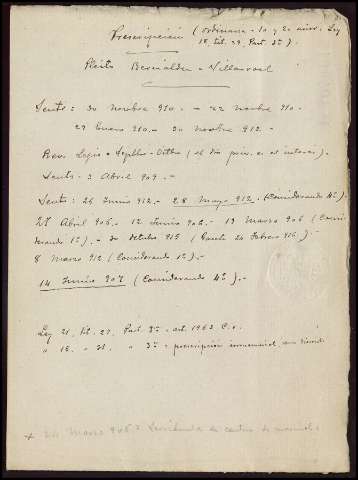 Prescripción (ordinaria - 10 y 20 años. Ley
18, tít. 29, Part. 3ª).
Pleito Bernáldez - Villarroel
Sents: 30 Novbre 910. - 22 Novbre 910.
29 Enero 910. - 30 Novbre 912.-
Rev. Legis - Septbre - Octbre
Sents. 3 Abril 909.-
Sents: 26 Junio 912.- 28 Mayo 912. (Considerando
27 Abril 906.- 12 Junio 906.- 13 Marzo 906 (Consi
derando 1º).- 30 Octubre 915 (Gaceta 20 Febrero 916).-
8 Marzo 912 (Considerando 1º).-
14 Junio 907 (Considerando 4º).-
Ley 21, tít. 29, Part. 3ª - art. 1963 C. c.
" 15. - 31. " 3ª - prescripción inmemorial
+ Marzo 906